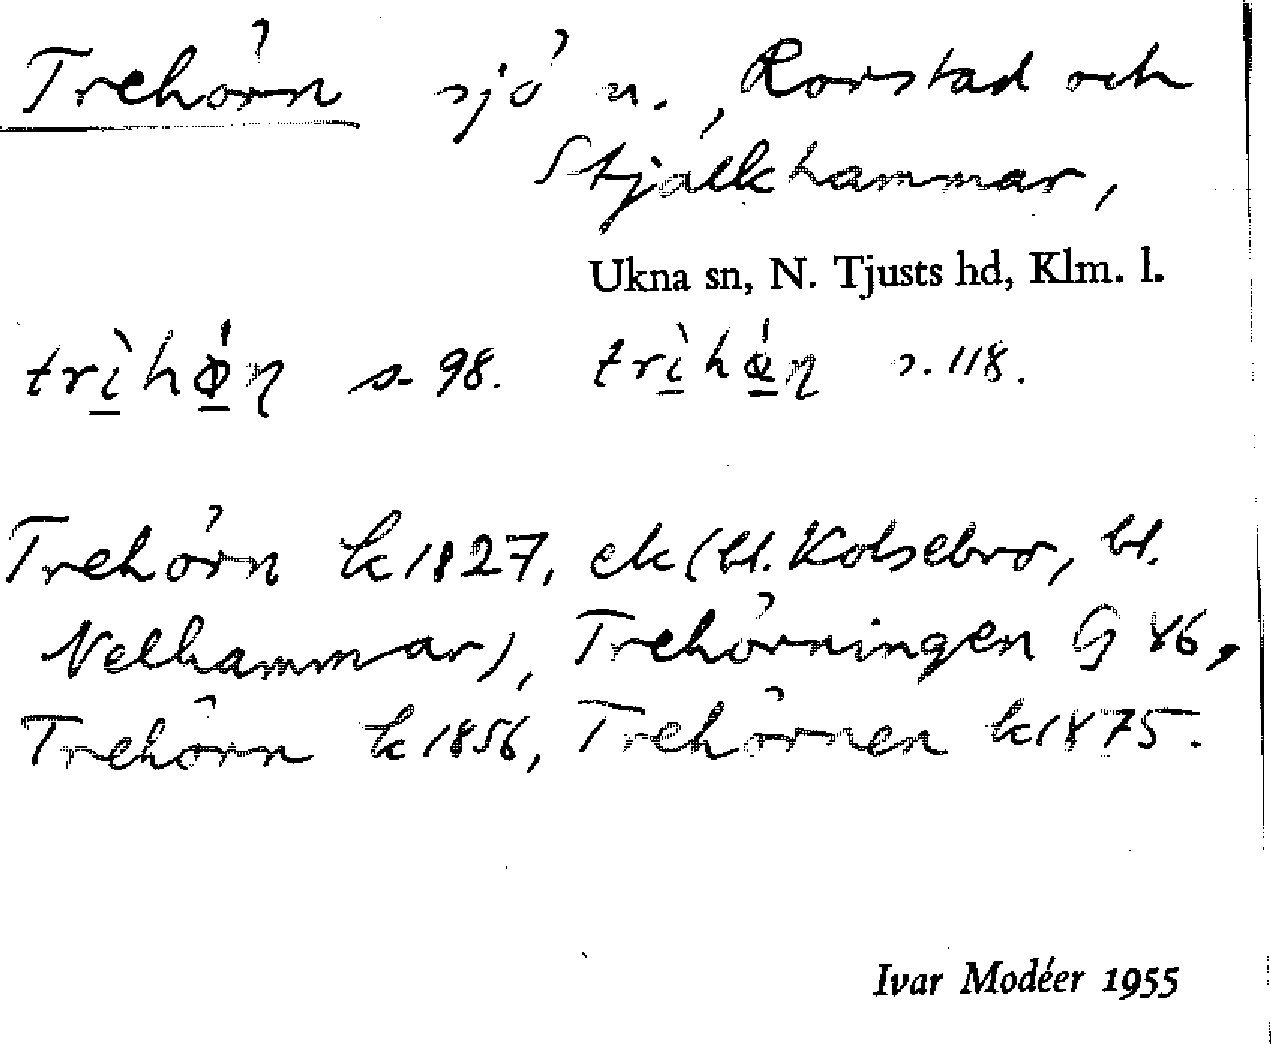 Trehörn sjö n., Rorstad och
Stjälkhammar,
Ukna sn, N. Tjusts hd, Klm. l.
trìhǿn s. 98. trìhǿn s. 118.
Trehörn k 1827, ek (bl. Kolsebro, bl.
Nelhammar), Trehörningen G 46,
Trehörn k 1856, Trehörnen k 1875.
Ivar Modéer 1955